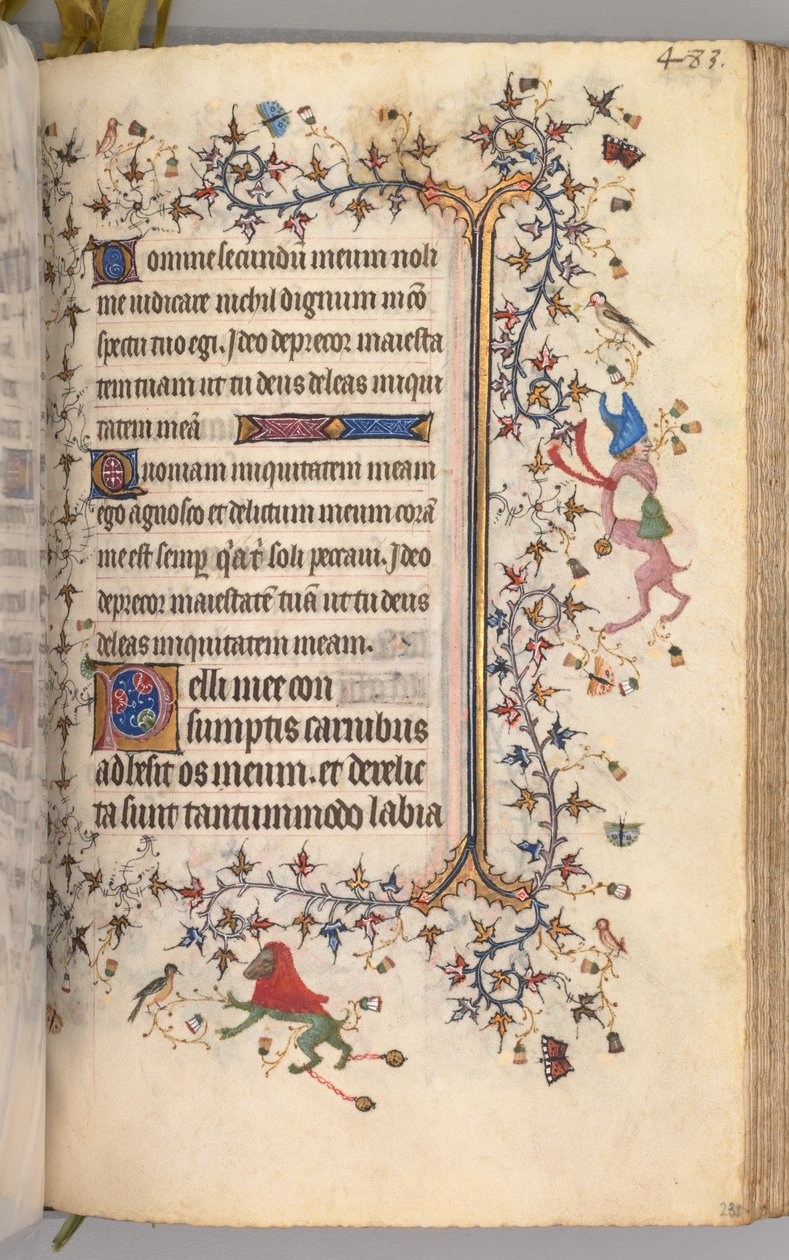 483.
Domine secundū meum noli
me iudicare nichil dignum in cō
spectu tuo egi. Ideo deprecor maiesta
tem tuam ut tu deus deleas iniqui
tatem meā
Quoniam iniquitatem meam
ego agnosco et delictum meum corā
me est semp̄ soli peccaui. Ideo
deprecor maiestatē tuā ut tu deus
deleas iniquitatem meam.
Pelli mee con
sumptis carnibus
adhesit os meum. et derelic
ta sunt tantummodo labia